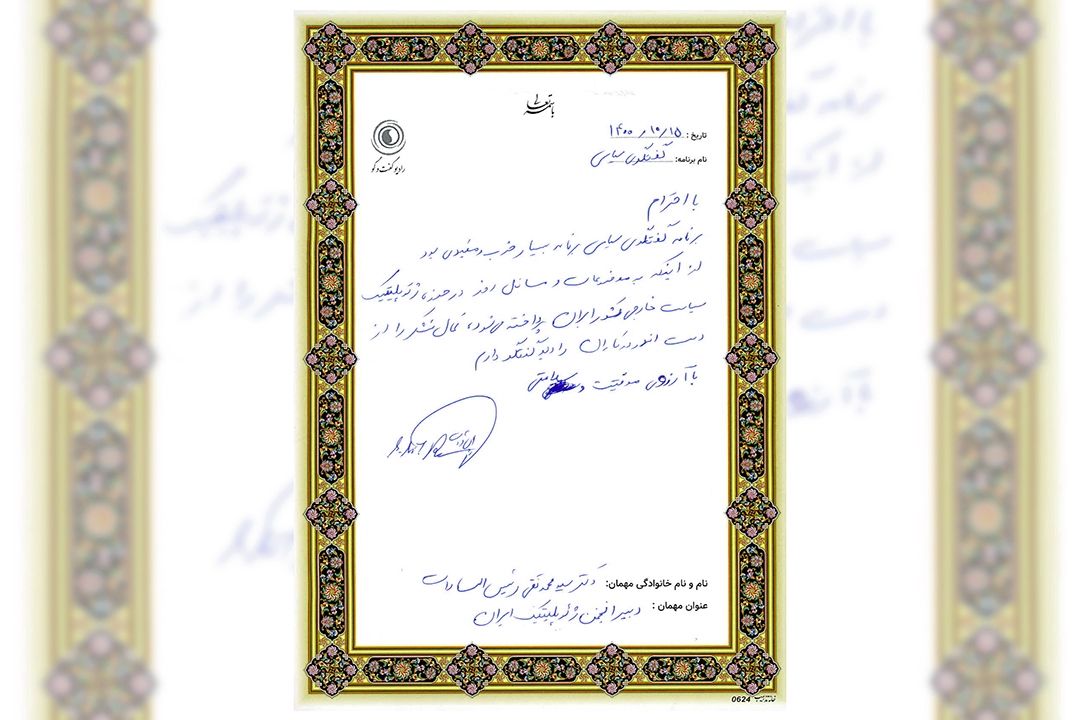 باسمه تعالی
رادیو گفت و گو
تاریخ: ۱۴۰۰/۱۰/۱۵
نام برنامه: گفتگوی سیاسی
با احترام
برنامه گفتگوی سیاسی برنامه بسیار خوب و مفیدی بود
از اینکه به موضوعات و مسائل روز در حوزه ژئوپلیتیک
سیاست خارجی کشور ایران پرداخته می‌شود، کمال تشکر را از
دست اندرکاران رادیو گفتگو دارم
با آرزوی موفقیت و سلامتی
نام و نام خانوادگی مهمان: دکتر سید محمدتقی رئیس السادات
عنوان مهمان: دبیر انجمن ژئوپلیتیک ایران
0624